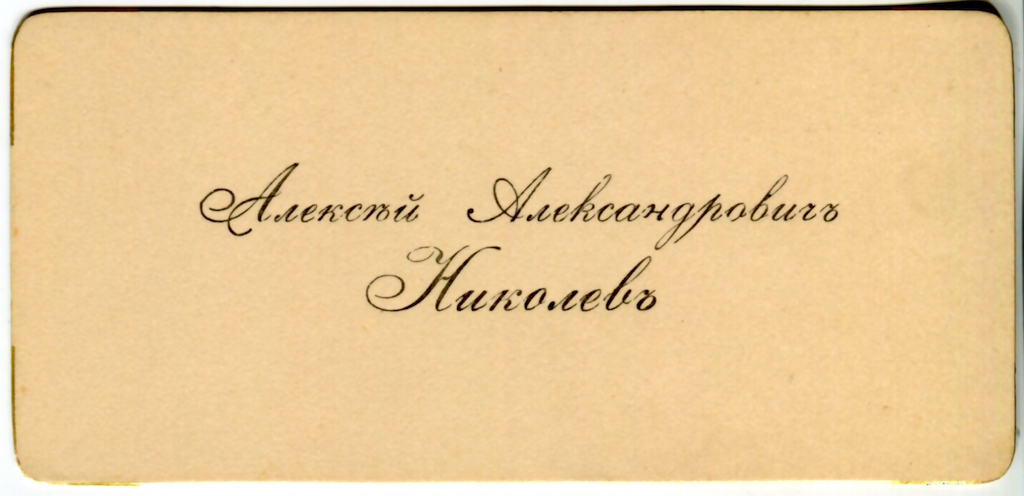 Алексѣй Александровичъ
Николевъ